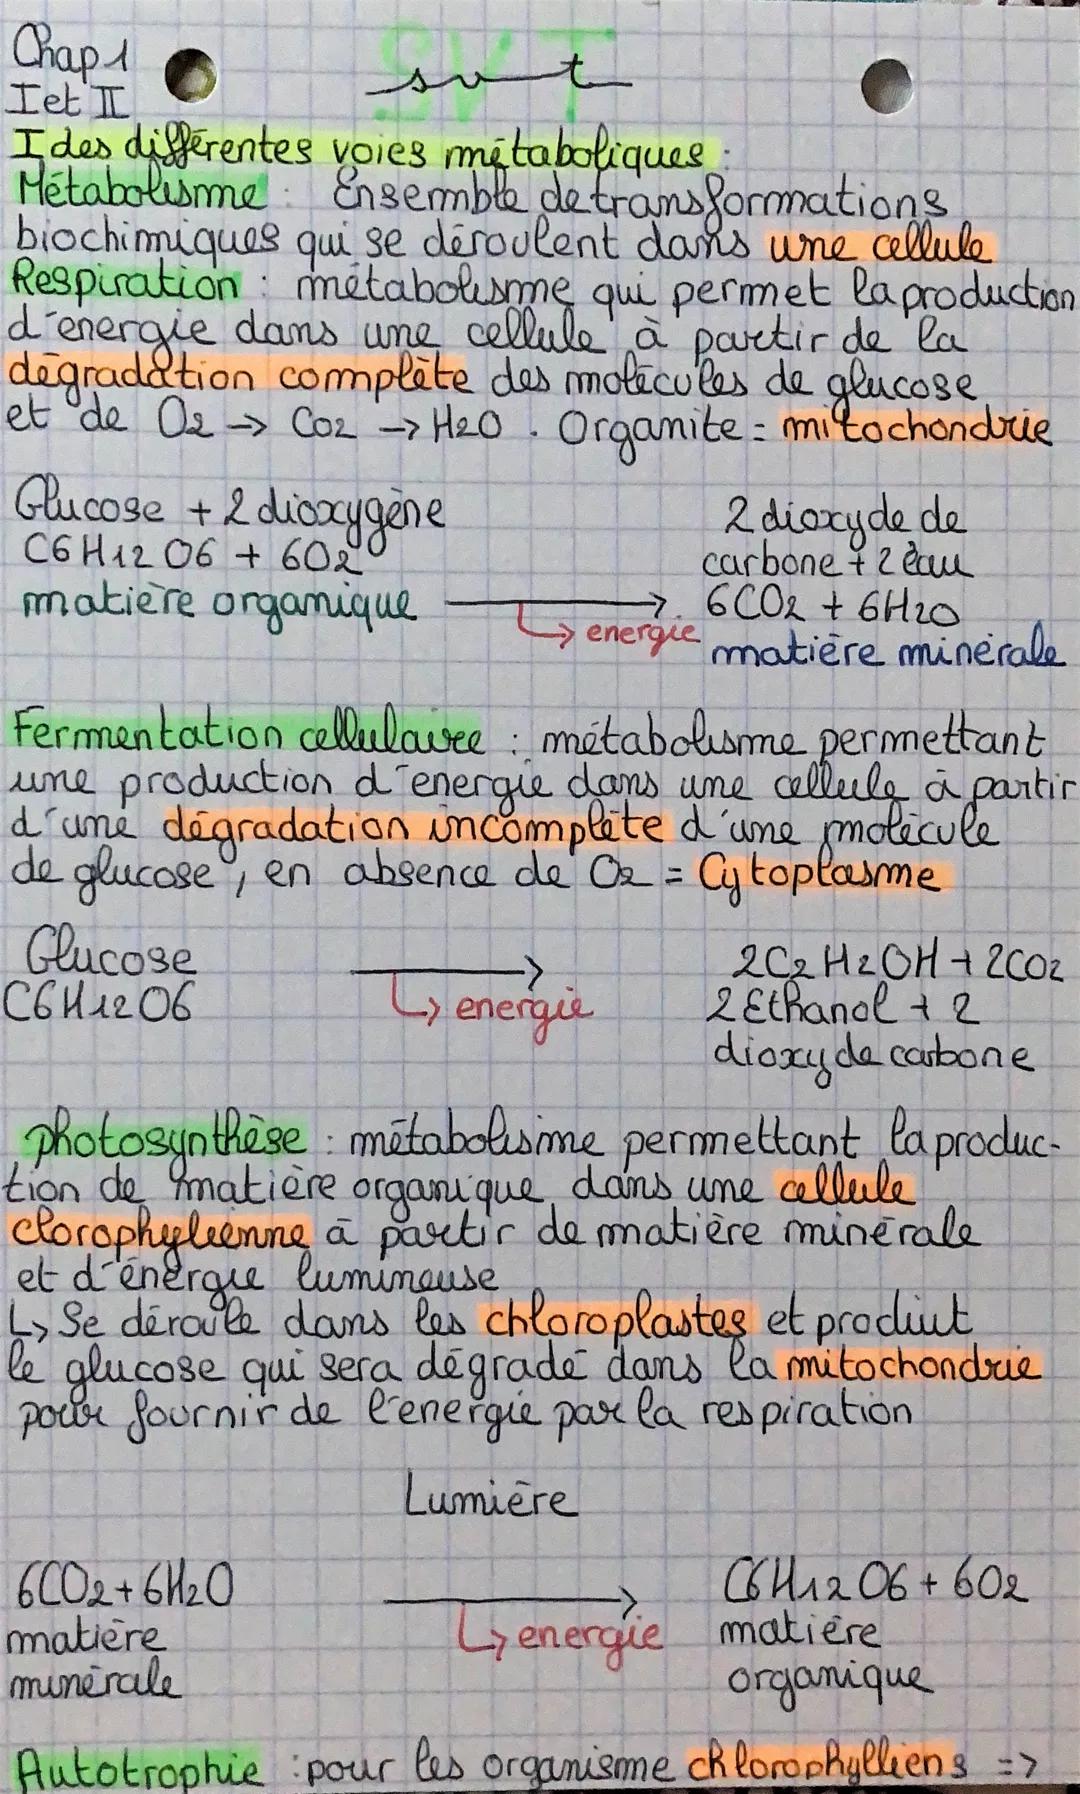 Chap 1
SVT
svt
I et II
I des différentes voies métaboliques :
Métabolisme : Ensemble de transformations
biochimiques qui se déroulent dans une cellule
Respiration : métabolisme qui permet la production
d'énergie dans une cellule à partir de la
dégradation complète des molécules de glucose
et de O2 → CO2 → H2O . Organite = mitochondrie
Glucose + 2 dioxygène
C6H12O6 + 6O2
matière organique
→ énergie
2 dioxyde de
carbone + 2 eau
6CO2 + 6H2O
matière minérale
Fermentation cellulaire : métabolisme permettant
une production d'énergie dans une cellule à partir
d'une dégradation incomplète d'une molécule
de glucose, en absence de O2 = Cytoplasme
Glucose
C6H12O6
→ énergie
2C2H2OH + 2CO2
2 Ethanol + 2
dioxyde carbone
photosynthèse : métabolisme permettant la produc-
tion de matière organique dans une cellule
clorophylienne à partir de matière minérale
et d'énergie lumineuse
↳ Se déroule dans les chloroplastes et produit
le glucose qui sera dégradé dans la mitochondrie
pour fournir de l'energie par la respiration
Lumière
6CO2 + 6H2O
matière
minérale
→ énergie
C6H12O6 + 6O2
matière
organique
Autotrophie : pour les organisme chlorophylliens =>